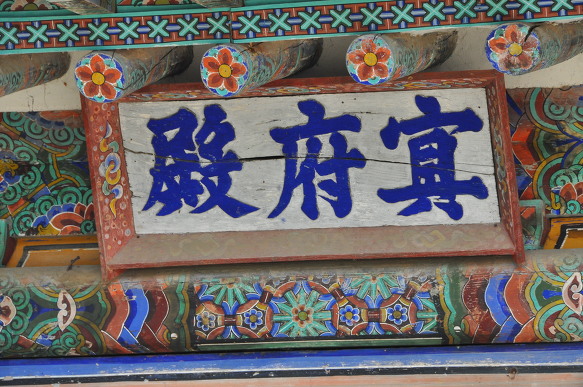 冥府殿